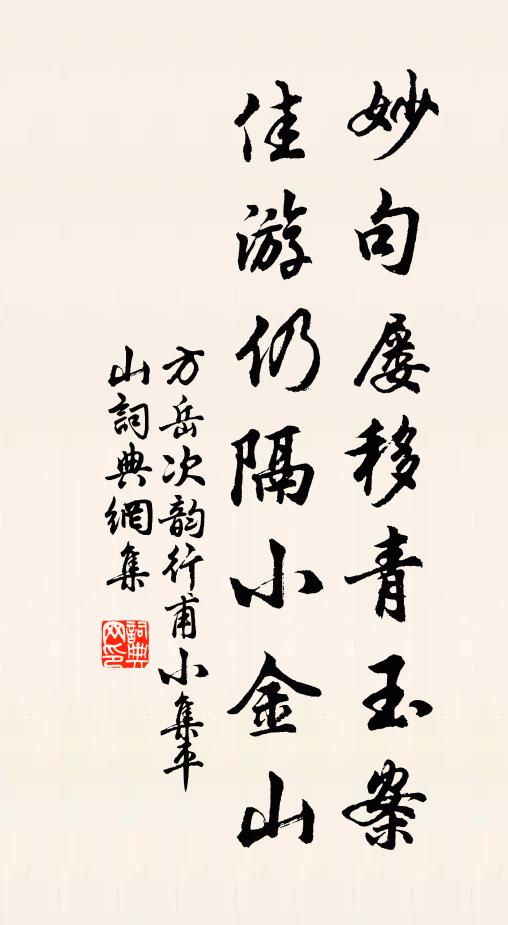 妙句屡移青玉案
佳游仍隔小金山
方岳次韵行甫小集平
山詞典網集
詞典网印